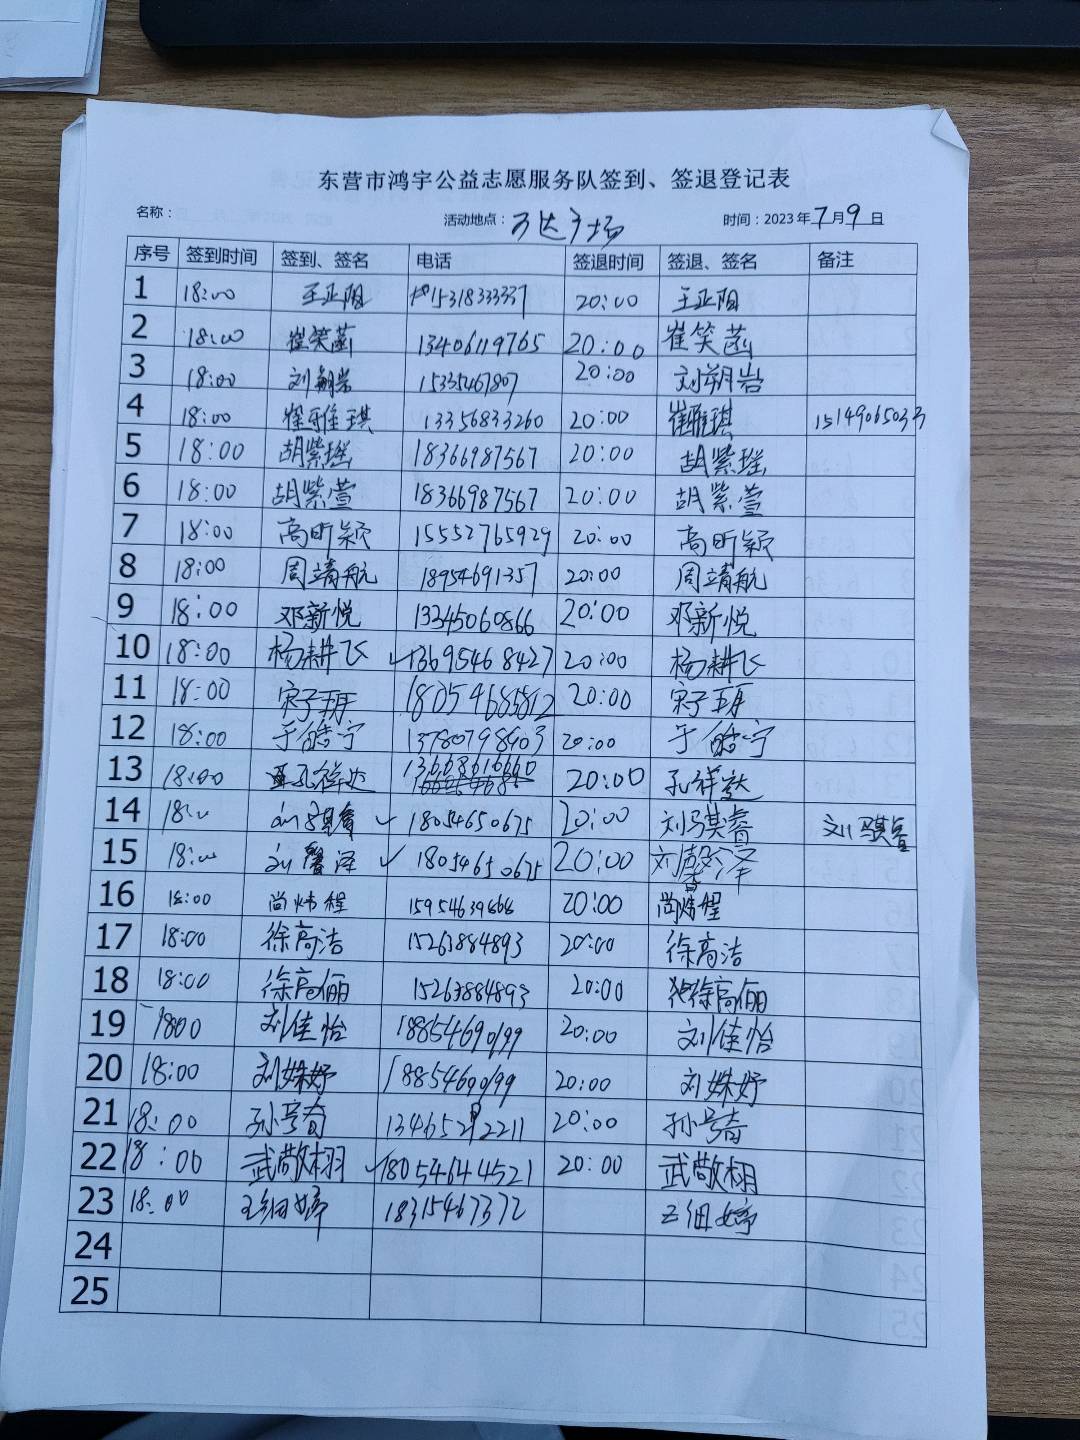 东营市鸿宇公益志愿服务队签到、签退登记表
名称： 活动地点：万达广场 时间：2023年7月9日
序号 签到时间 签到、签名 电话 签退时间 签退、签名 备注
1 18:00 王亚阻 15318333337 20:00 王亚阻
2 18:00 崔笑菡 13406119765 20:00 崔笑菡
3 18:00 刘朔岩 15335467807 20:00 刘朔岩
4 18:00 崔雅琪 13356833260 20:00 崔雅琪 15149065033
5 18:00 胡紫瑶 18366987567 20:00 胡紫瑶
6 18:00 胡紫萱 18366987567 20:00 胡紫萱
7 18:00 高昕颖 15552765929 20:00 高昕颖
8 18:00 周靖航 18954691357 20:00 周靖航
9 18:00 邓新悦 13245060866 20:00 邓新悦
10 18:00 杨耕飞 ✓13695468427 20:00 杨耕飞
11 18:00 宋子玥 18054685812 20:00 宋子玥
12 18:00 于皓宁 13780798403 20:00 于皓宁
13 18:00 孔祥达 13668616660 20:00 孔祥达
14 18:00 刘骐睿 ✓ 18054650675 20:00 刘骐睿 刘骐睿
15 18:00 刘馨泽 ✓ 18054650675 20:00 刘馨泽
16 18:00 尚炜程 15954639666 20:00 尚炜程
17 18:00 徐高洁 15263884893 20:00 徐高洁
18 18:00 徐高俪 15263884893 20:00 徐高俪
19 1800 刘佳怡 18854690199 20:00 刘佳怡
20 18:00 刘姝妤 18854690199 20:00 刘姝妤
21 18:00 孙号奇 13465292211 20:00 孙号奇
22 18:00 武敬栩 ✓18054644521 20:00 武敬栩
23 18:00 王细婷 18315467372 王细婷
24
25